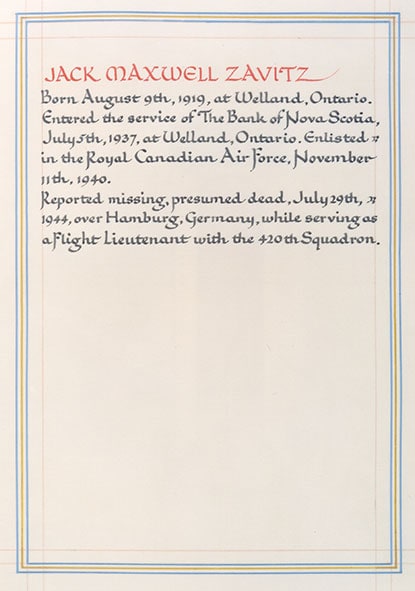 JACK MAXWELL ZAVITZ
Born August 9th, 1919, at Welland, Ontario.
Entered the service of The Bank of Nova Scotia,
July 5th, 1937, at Welland, Ontario. Enlisted
in the Royal Canadian Air Force, November
11th, 1940.
Reported missing, presumed dead, July 29th,
1944, over Hamburg, Germany, while serving as
a Flight Lieutenant with the 420th Squadron.